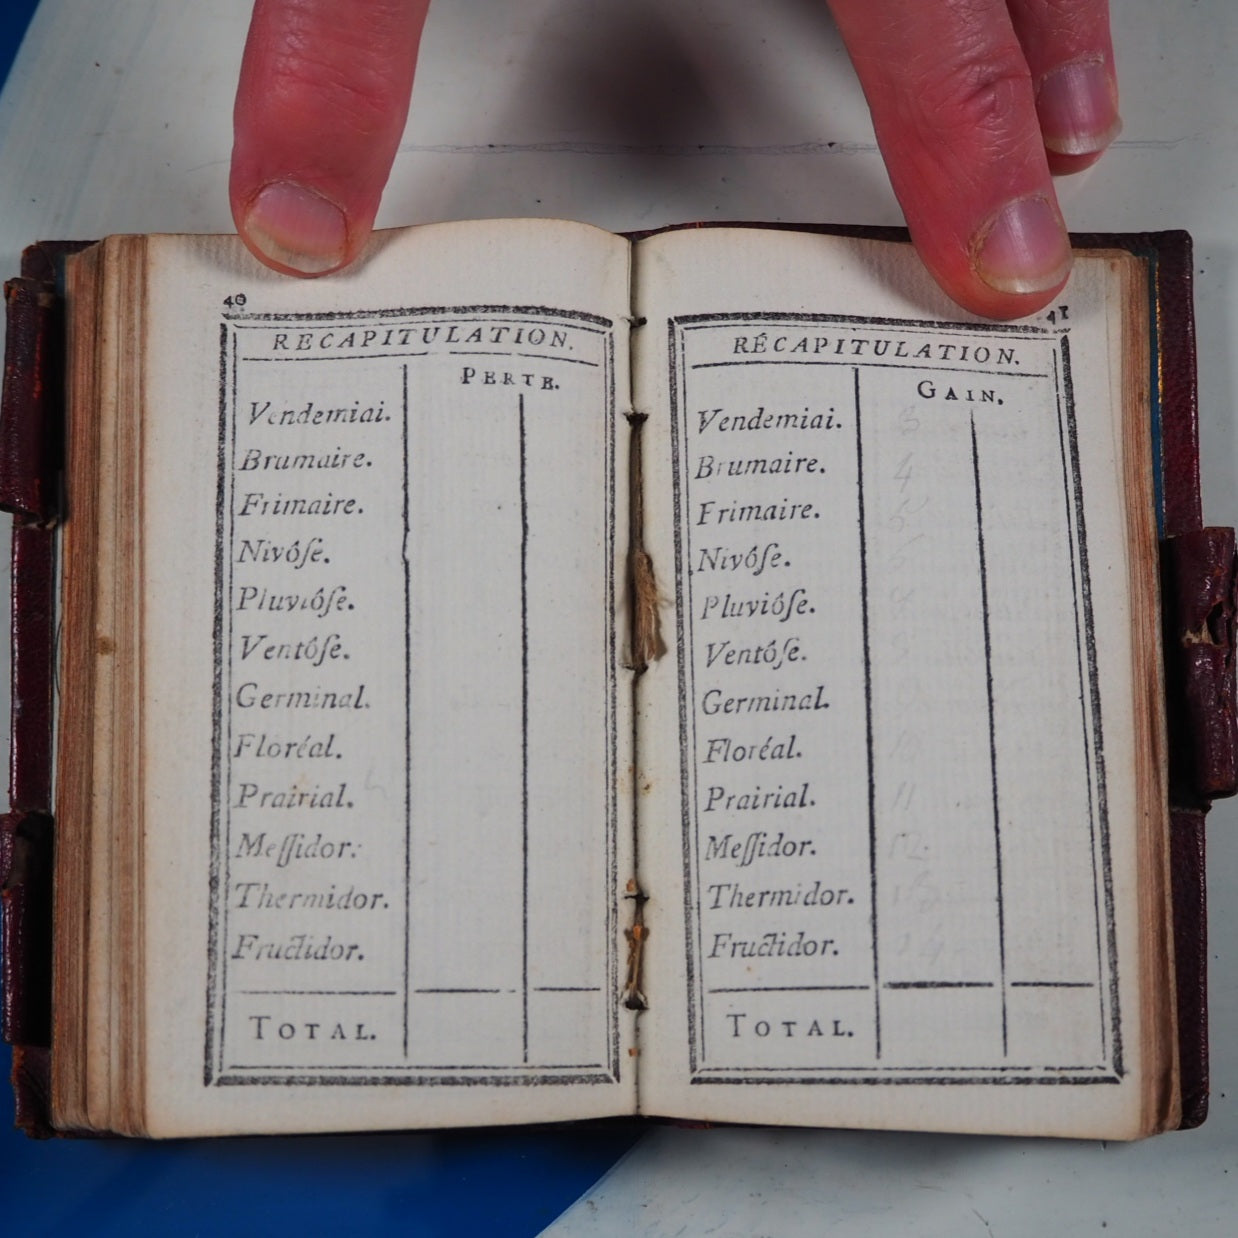 40
RECAPITULATION.
PERTE.
Vendemiai.
Brumaire.
Frimaire.
Nivôſe.
Pluviôſe.
Ventôſe.
Germinal.
Floréal.
Prairial.
Meſſidor.
Thermidor.
Fructidor.
TOTAL.
41
RÉCAPITULATION.
GAIN.
Vendemiai. 3
Brumaire. 4
Frimaire. 5
Nivôſe.
Pluviôſe.
Ventôſe.
Germinal.
Floréal.
Prairial. 11
Meſſidor. 12
Thermidor. 13
Fructidor. 14
TOTAL.